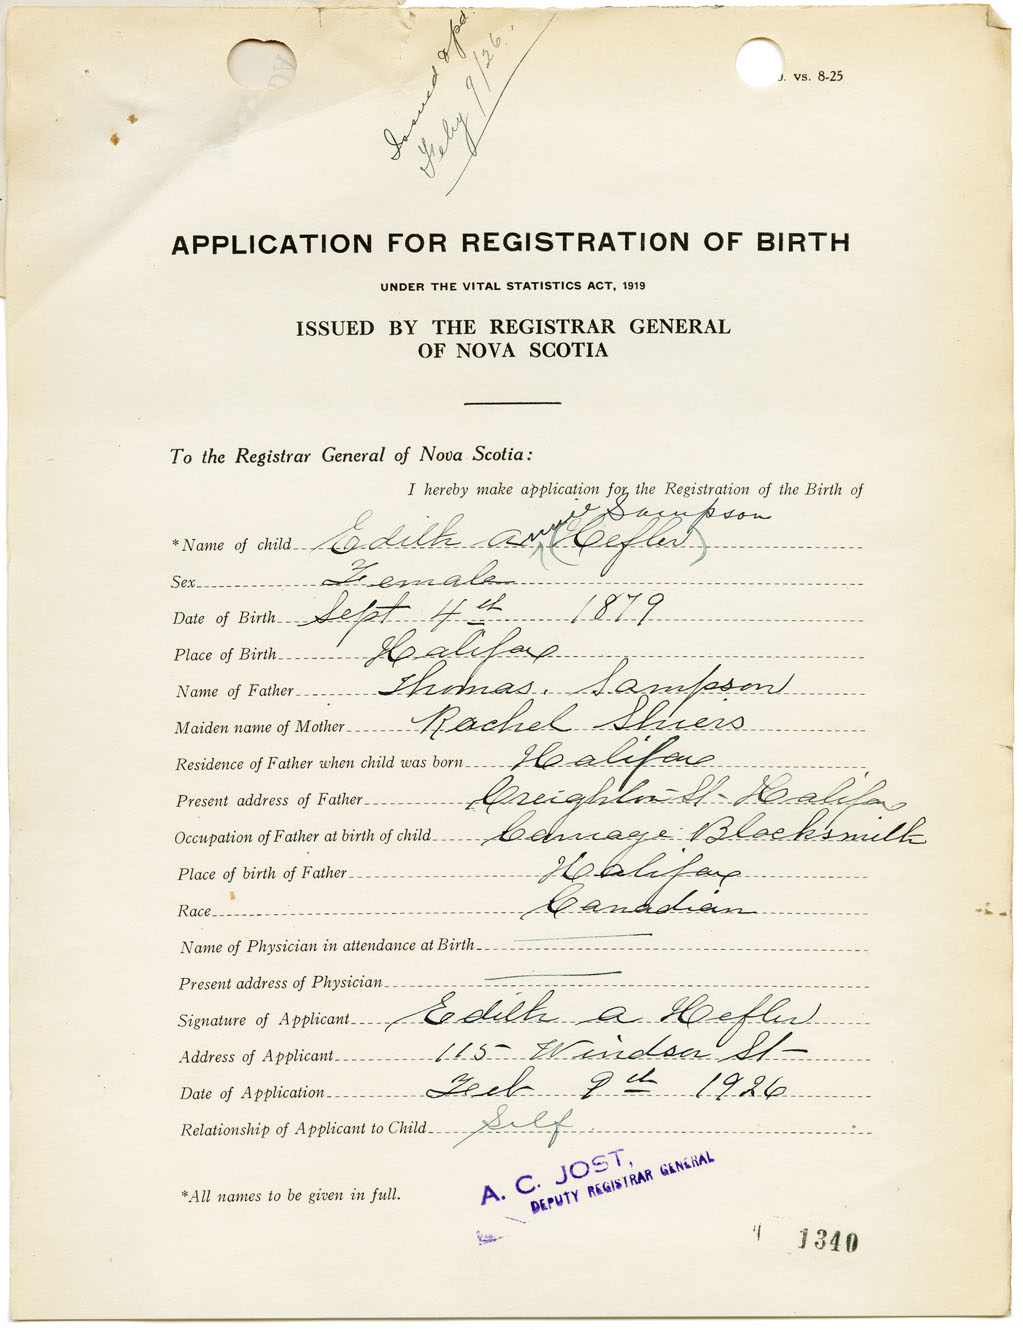 Issued & pd.
Feby 9/26.
vs. 8-25
APPLICATION FOR REGISTRATION OF BIRTH
UNDER THE VITAL STATISTICS ACT, 1919
ISSUED BY THE REGISTRAR GENERAL
OF NOVA SCOTIA
To the Registrar General of Nova Scotia:
I hereby make application for the Registration of the Birth of
nnie Sampson
*Name of child Edith A (Hefler)
Sex Female
Date of Birth Sept 4th 1879
Place of Birth Halifax
Name of Father Thomas. Sampson
Maiden name of Mother Rachel Shiers
Residence of Father when child was born Halifax
Present address of Father Creighton St- Halifax
Occupation of Father at birth of child Carriage Blacksmith
Place of birth of Father Halifax
Race Canadian
Name of Physician in attendance at Birth
Present address of Physician
Signature of Applicant Edith A Hefler
Address of Applicant 115 Windsor St-
Date of Application Feb 9th 1926
Relationship of Applicant to Child Self
*All names to be given in full.
A. C. JOST,
DEPUTY REGISTRAR GENERAL
1340